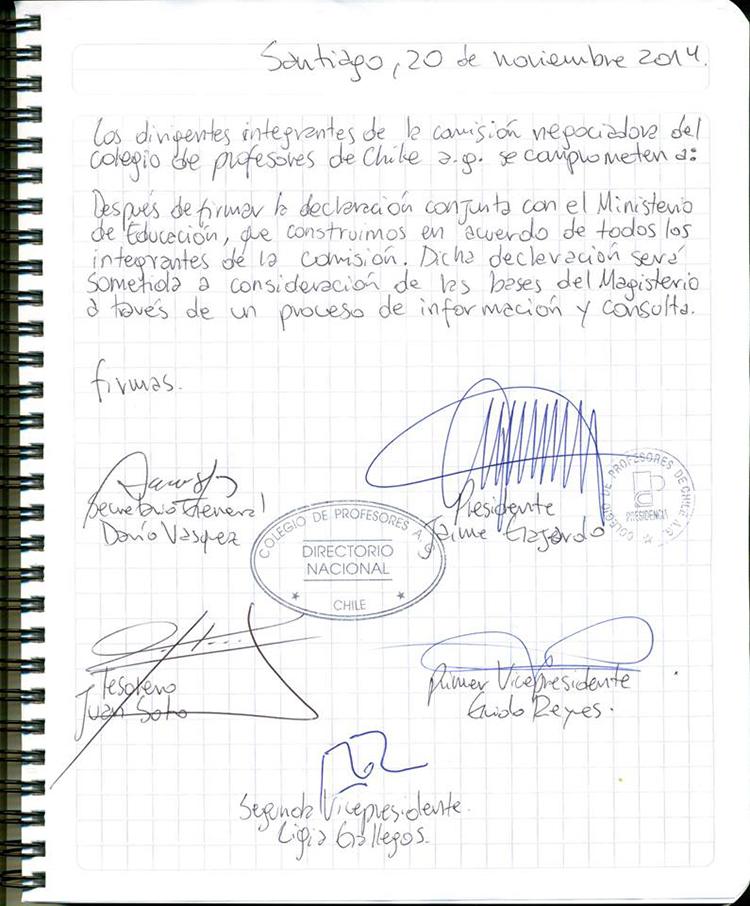 Santiago, 20 de noviembre 2014.
Los dirigentes integrantes de la comisión negociadora del
colegio de profesores de Chile a.g. se comprometen a:
Después de firmar la declaración conjunta con el Ministerio
de Educación, que construimos en acuerdo de todos los
integrantes de la comisión. Dicha declaración será
sometida a consideración de las bases del Magisterio
a través de un proceso de información y consulta.
firmas.
Secretario General
Darío Vásquez
Presidente
Jaime Gajardo
COLEGIO DE PROFESORES DE CHILE A.G.
PRESIDENCIA
COLEGIO DE PROFESORES A. G.
DIRECTORIO
NACIONAL
CHILE
Tesorero
Juan Soto
Primer Vicepresidente
Guido Reyes.
Segunda Vicepresidente.
Ligia Gallegos.